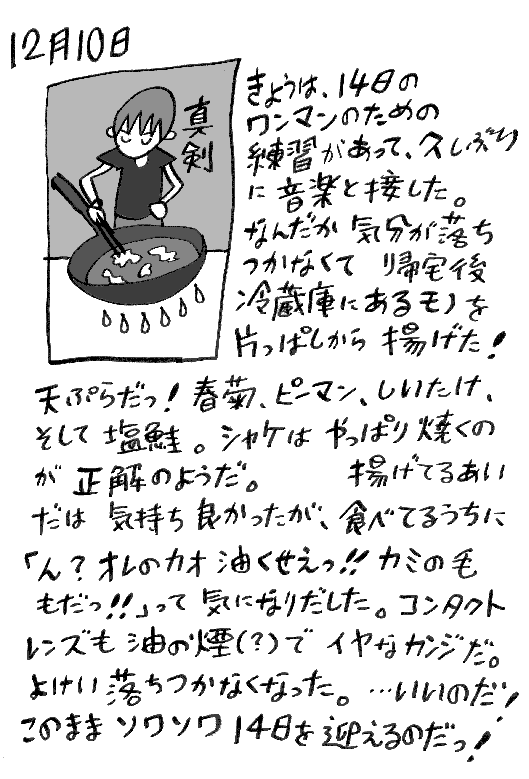 12月10日
真剣
きょうは、14日の
ワンマンのための
練習があって、久しぶり
に音楽と接した。
なんだか 気分が落ち
つかなくて 帰宅後
冷蔵庫にあるモノを
片っぱしから 揚げた!
天ぷらだっ! 春菊、ピーマン、しいたけ、
そして 塩鮭。シャケは やっぱり 焼くの
が 正解のようだ。 揚げてるあい
だは 気持ち 良かったが、食べてるうちに
「ん?オレのカオ 油くせえっ!!カミの毛
もだっ!!」って 気になりだした。コンタクト
レンズも 油の煙(?)で イヤなカンジだ。
よけい 落ちつかなくなった。…いいのだ!
このまま ソワソワ 14日を 迎えるのだっ!